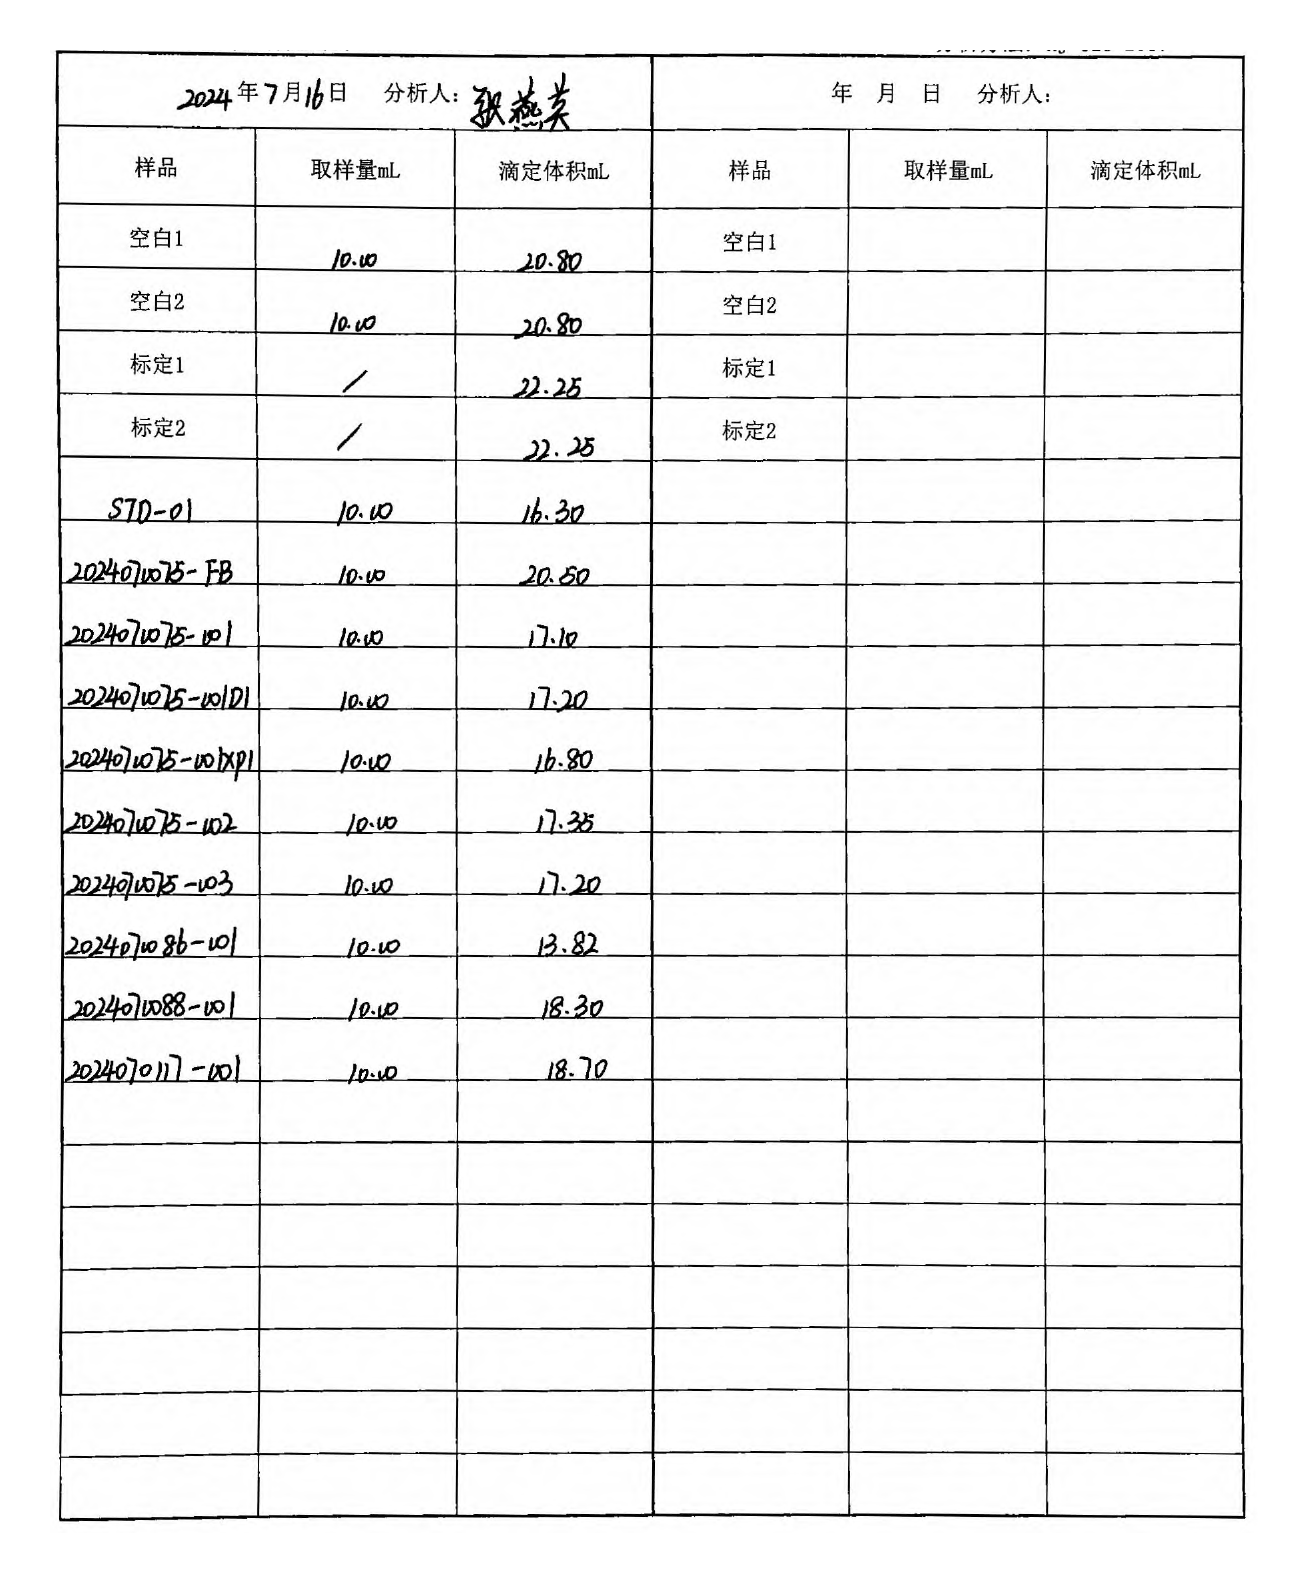 2024年7月16日 分析人: 张燕英 年 月 日 分析人:
样品 取样量mL 滴定体积mL 样品 取样量mL 滴定体积mL
空白1 10.00 20.80 空白1
空白2 10.00 20.80 空白2
标定1 / 22.25 标定1
标定2 / 22.25 标定2
STD-01 10.00 16.30
2024070075-FB 10.00 20.50
2024070075-001 10.00 17.10
2024070075-001D1 10.00 17.20
2024070075-001XP1 10.00 16.80
2024070075-002 10.00 17.35
2024070075-003 10.00 17.20
2024070086-001 10.00 13.82
2024070088-001 10.00 18.30
2024070117-001 10.00 18.70